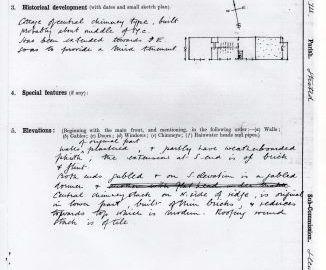 3. Historical development (with dates and small sketch plan).
Cottage of central chimney type, built
probably about middle of 17.c.
has been extended towards S E
so as to provide a third tenement
4. Special features (if any):
5. Elevations: (Beginning with the main front, and mentioning, in the following order:—(a) Walls;
(b) Gables; (c) Doors; (d) Windows; (e) Chimneys; (f) Rainwater heads and pipes.)
of original part
walls plastered, & partly have weatherboarded
plinth, the extension at S. end is of brick
& flint.
Both ends gabled & on S. elevation is a gabled
dormer &
Central chimney stack on N. side of ridge, is original
in lower part, built of thin bricks, & reduces
towards top which is modern. Roofing round
stack is of tile
Parish.
Sub-Commission.